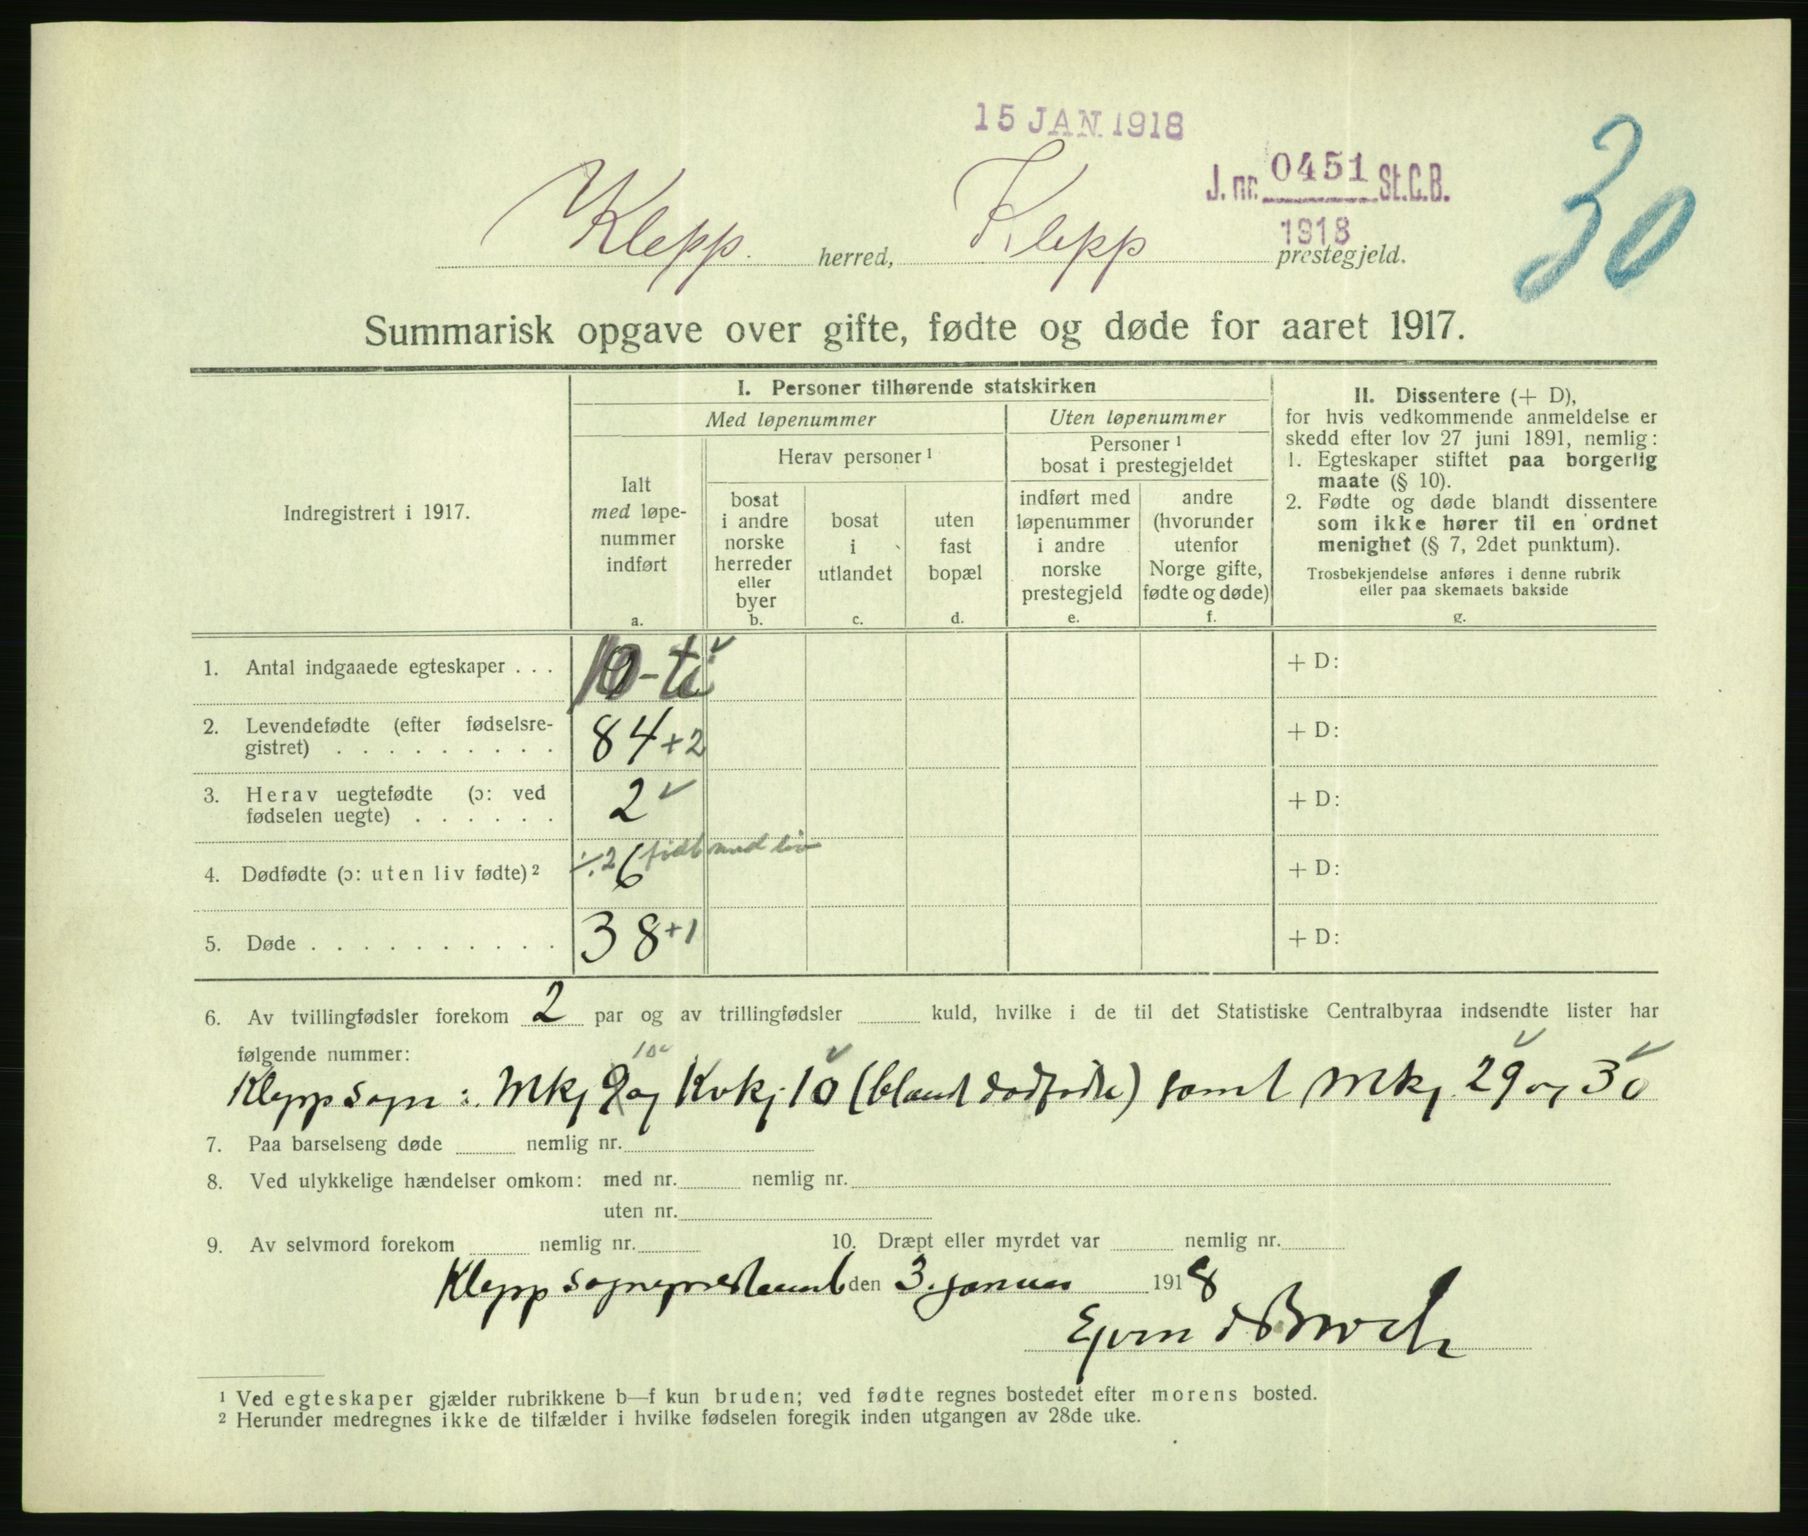 15 JAN. 1918
J. nr. 0451 St.C.B.
1918
30
Klepp. herred, Klepp prestegjeld.
Summarisk opgave over gifte, fødte og døde for aaret 1917.
Indregistrert i 1917.
I. Personer tilhørende statskirken
Med løpenummer
Uten løpenummer
Ialt
med løpe-
nummer
indført
a.
Herav personer ¹
bosat
i andre
norske
herreder
eller
byer
b.
bosat
i
utlandet
c.
uten
fast
bopæl
d.
Personer ¹
bosat i prestegjeldet
indført med
løpenummer
i andre
norske
prestegjeld
e.
andre
(hvorunder
utenfor
Norge gifte,
fødte og døde)
f.
II. Dissentere (+ D),
for hvis vedkommende anmeldelse er
skedd efter lov 27 juni 1891, nemlig:
1. Egteskaper stiftet paa borgerlig
maate (§ 10).
2. Fødte og døde blandt dissentere
som ikke hører til en ordnet
menighet (§ 7, 2det punktum).
Trosbekjendelse anføres i denne rubrik
eller paa skemaets bakside
g.
1. Antal indgaaede egteskaper . . . 10 - ti ✓ + D:
2. Levendefødte (efter fødselsre-
gistret) . . . . . . . . . 84 + 2 + D:
3. Herav uegtefødte (ɔ: ved
fødselen uegte) . . . . . . 2 ✓ + D:
4. Dødfødte (ɔ: uten liv fødte) ² ÷ 2 6 født med liv + D:
5. Døde . . . . . . . . . . 38 + 1 + D:
6. Av tvillingfødsler forekom 2 par og av trillingfødsler kuld, hvilke i de til det Statistiske Centralbyraa indsendte lister har
følgende nummer:
10 ✓
Klepp sogn: Mkj 9 og Kvkj 10 ✓ (blandt dødfødte) samt Mkj. 29 ✓ og 30 ✓
7. Paa barselseng døde nemlig nr.
8. Ved ulykkelige hændelser omkom: med nr. nemlig nr.
uten nr.
9. Av selvmord forekom nemlig nr. 10. Dræpt eller myrdet var nemlig nr.
Klepp sogneprestembede den 3. januar 1918
Ejvind Broch
¹ Ved egteskaper gjælder rubrikkene b—f kun bruden; ved fødte regnes bostedet efter morens bosted.
² Herunder medregnes ikke de tilfælder i hvilke fødselen foregik inden utgangen av 28de uke.